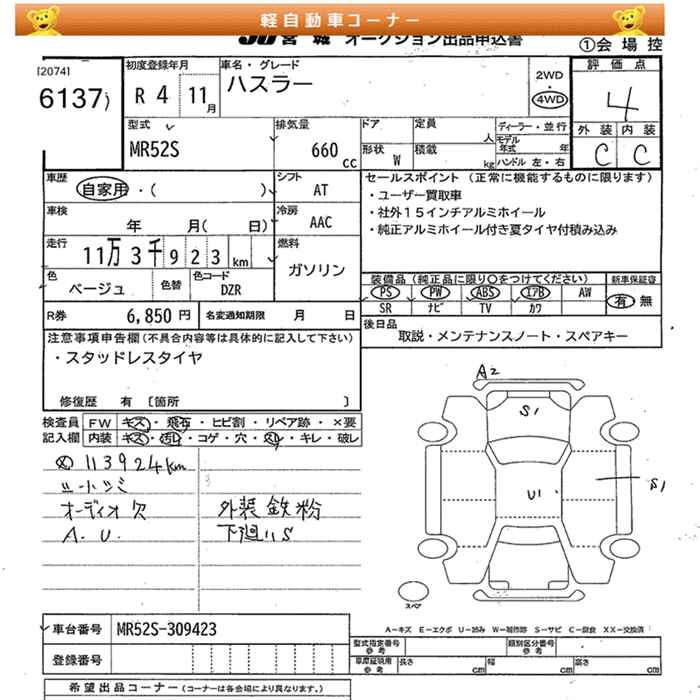 軽自動車コーナー
JU 宮城 オークション出品申込書
①会場控
[2074]
6137)
初度登録年月
R 4 11月
車名・グレード
ハスラー
2WD
・
4WD
評価点
4
外装 内装
C C
型式
MR52S
排気量
660 cc
ドア
定員
人
形状
W
積載
kg
ディーラー・並行
モデル年式 年
ハンドル 左・右
車歴
自家用・( )
シフト
AT
車検
年 月( 日)
冷房
AAC
走行
11万3千923km
燃料
ガソリン
色
ベージュ
色替
色コード
DZR
R券 6,850円
名変通知期限 月 日
セールスポイント (正常に機能するものに限ります)
・ユーザー買取車
・社外15インチアルミホイール
・純正アルミホイール付き夏タイヤ付積み込み
装備品 (純正品に限り○をつけてください)
PS PW ABS エアB AW
SR ナビ TV カワ
新車保証書
有 無
後日品
取説・メンテナンスノート・スペアキー
注意事項申告欄 (不具合内容等は具体的に記入して下さい)
・スタッドレスタイヤ
修復歴 有 〔箇所 〕
検査員記入欄
FW キズ・飛石・ヒビ割・リペア跡・×要
内装 キズ・汚レ・コゲ・穴・スレ・キレ・破レ
113924km
シートシミ
オーディオ欠
A.U.
外装鉄粉
下廻りS
A2
S1
U1
S1
スペア
A－キズ E－エクボ U－凹み W－補修跡 S－サビ C－腐食 XX－交換済
車台番号 MR52S-309423
登録番号
型式指定番号 参考
類別区分番号 参考
車庫証明用 参考
長さ cm 幅 cm 高さ cm
希望出品コーナー (コーナーは各会場により異なります。)